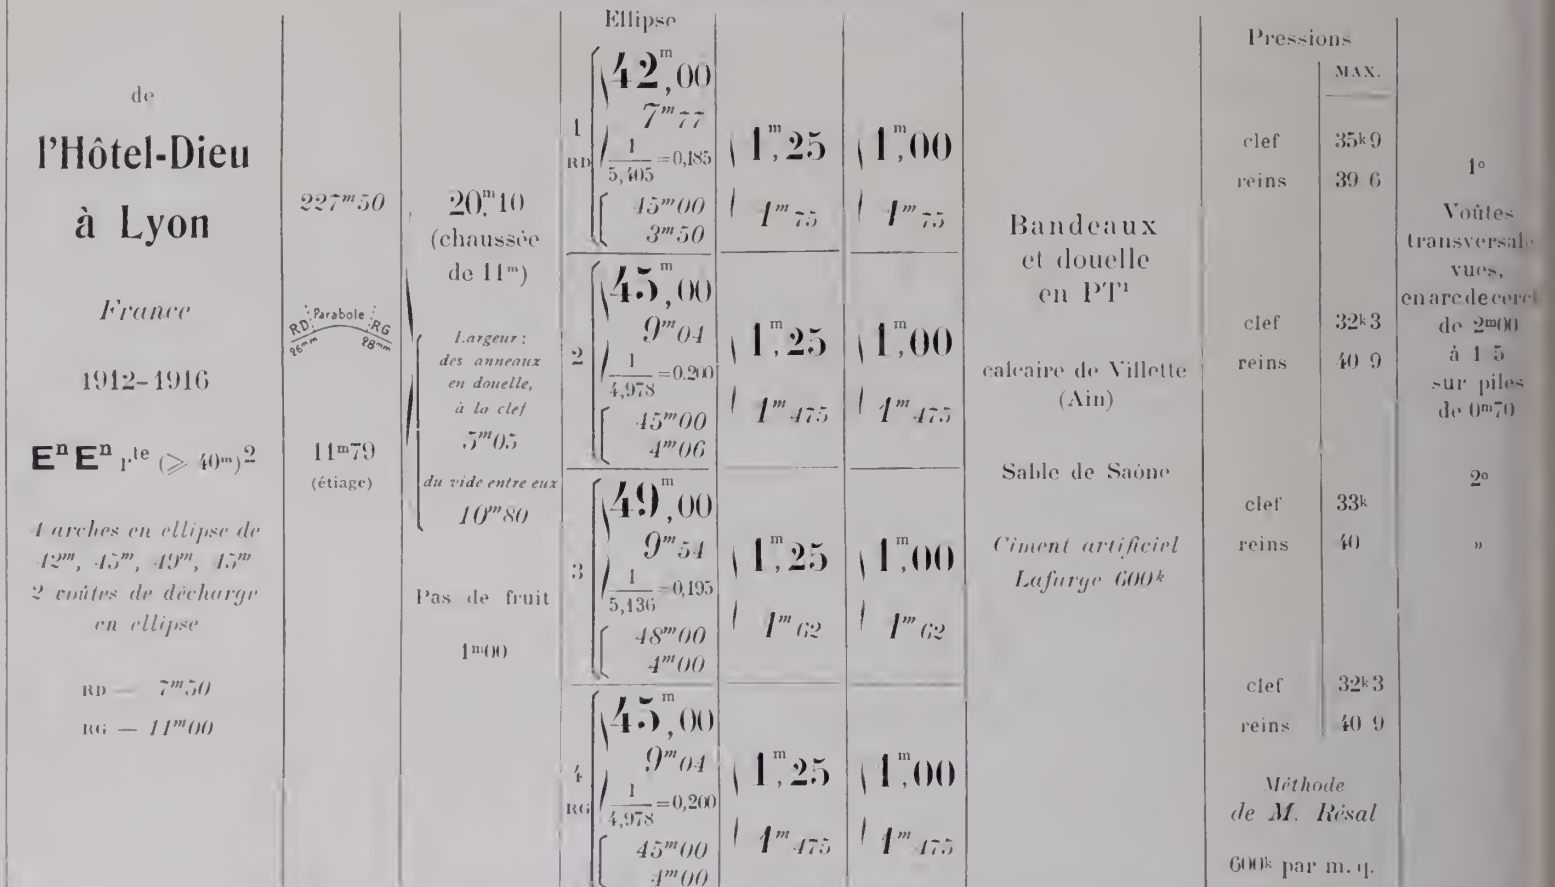 de
l'Hôtel-Dieu
à Lyon
France
1912-1916
Eⁿ Eⁿ r.te (⩾ 40m)2
4 arches en ellipse de
42m, 45m, 49m, 45m
2 voûtes de décharge
en ellipse
RD — 7m50
RG — 11m00
227m50
RD Parabole RG
26mm 28mm
11m79
(étiage)
20m,10
(chaussée
de 11m)
Largeur :
des anneaux
en douelle,
à la clef
5m05
du vide entre eux
10m80
Pas de fruit
1m00
Ellipse
1
RD
42m,00
7m77
1/5,405 = 0,185
45m00
3m50
1m,25
1m75
1m,00
1m75
2
45m,00
9m04
1/4,978 = 0.200
45m00
4m06
1m,25
1m475
1m,00
1m475
3
49m,00
9m54
1/5,136 = 0,195
48m00
4m00
1m,25
1m62
1m,00
1m62
4
RG
45m,00
9m04
1/4,978 = 0,200
45m00
4m00
1m,25
1m475
1m,00
1m475
Bandeaux
et douelle
en PT1
calcaire de Villette
(Ain)
Sable de Saône
Ciment artificiel
Lafarge 600k
Pressions
MAX.
clef 35k9
reins 39 6
clef 32k3
reins 40 9
clef 33k
reins 40
clef 32k3
reins 40 9
Méthode
de M. Résal
600k par m.q.
1o
Voûtes
transversale
vues,
en arc de cercl
de 2m00
à 1 5
sur piles
de 0m70
2o
»